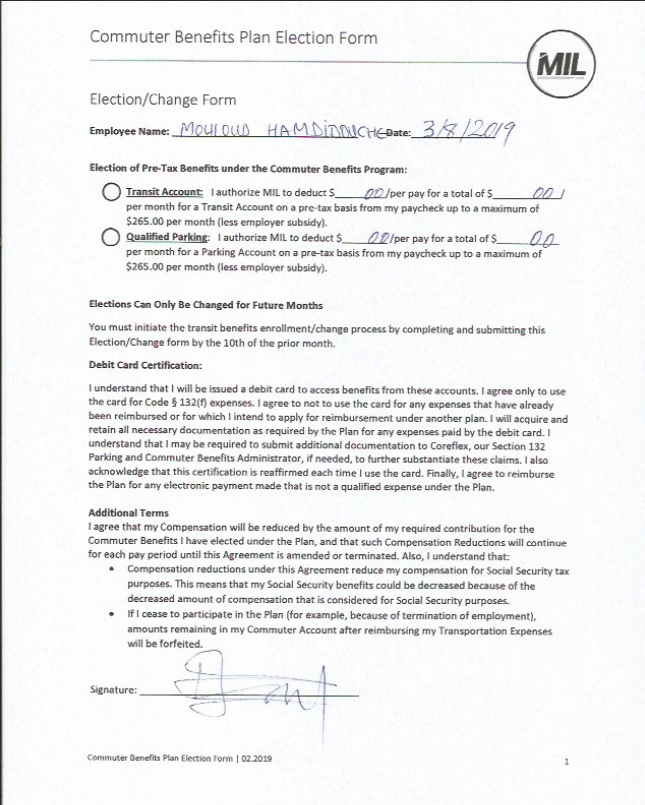 Commuter Benefits Plan Election Form
MIL
Election/Change Form
Employee Name: MOULOUD HAMDIDOUCHE Date: 3/8/2019
Election of Pre-Tax Benefits under the Commuter Benefits Program:
Transit Account: I authorize MIL to deduct $ 00 /per pay for a total of $ 00 /
per month for a Transit Account on a pre-tax basis from my paycheck up to a maximum of
$265.00 per month (less employer subsidy).
Qualified Parking: I authorize MIL to deduct $ 00 /per pay for a total of $ 00
per month for a Parking Account on a pre-tax basis from my paycheck up to a maximum of
$265.00 per month (less employer subsidy).
Elections Can Only Be Changed for Future Months
You must initiate the transit benefits enrollment/change process by completing and submitting this
Election/Change form by the 10th of the prior month.
Debit Card Certification:
I understand that I will be issued a debit card to access benefits from these accounts. I agree only to use
the card for Code § 132(f) expenses. I agree to not to use the card for any expenses that have already
been reimbursed or for which I intend to apply for reimbursement under another plan. I will acquire and
retain all necessary documentation as required by the Plan for any expenses paid by the debit card. I
understand that I may be required to submit additional documentation to Coreflex, our Section 132
Parking and Commuter Benefits Administrator, if needed, to further substantiate these claims. I also
acknowledge that this certification is reaffirmed each time I use the card. Finally, I agree to reimburse
the Plan for any electronic payment made that is not a qualified expense under the Plan.
Additional Terms
I agree that my Compensation will be reduced by the amount of my required contribution for the
Commuter Benefits I have elected under the Plan, and that such Compensation Reductions will continue
for each pay period until this Agreement is amended or terminated. Also, I understand that:
• Compensation reductions under this Agreement reduce my compensation for Social Security tax
purposes. This means that my Social Security benefits could be decreased because of the
decreased amount of compensation that is considered for Social Security purposes.
• If I cease to participate in the Plan (for example, because of termination of employment),
amounts remaining in my Commuter Account after reimbursing my Transportation Expenses
will be forfeited.
Signature:
Commuter Benefits Plan Election Form | 02.2019
1